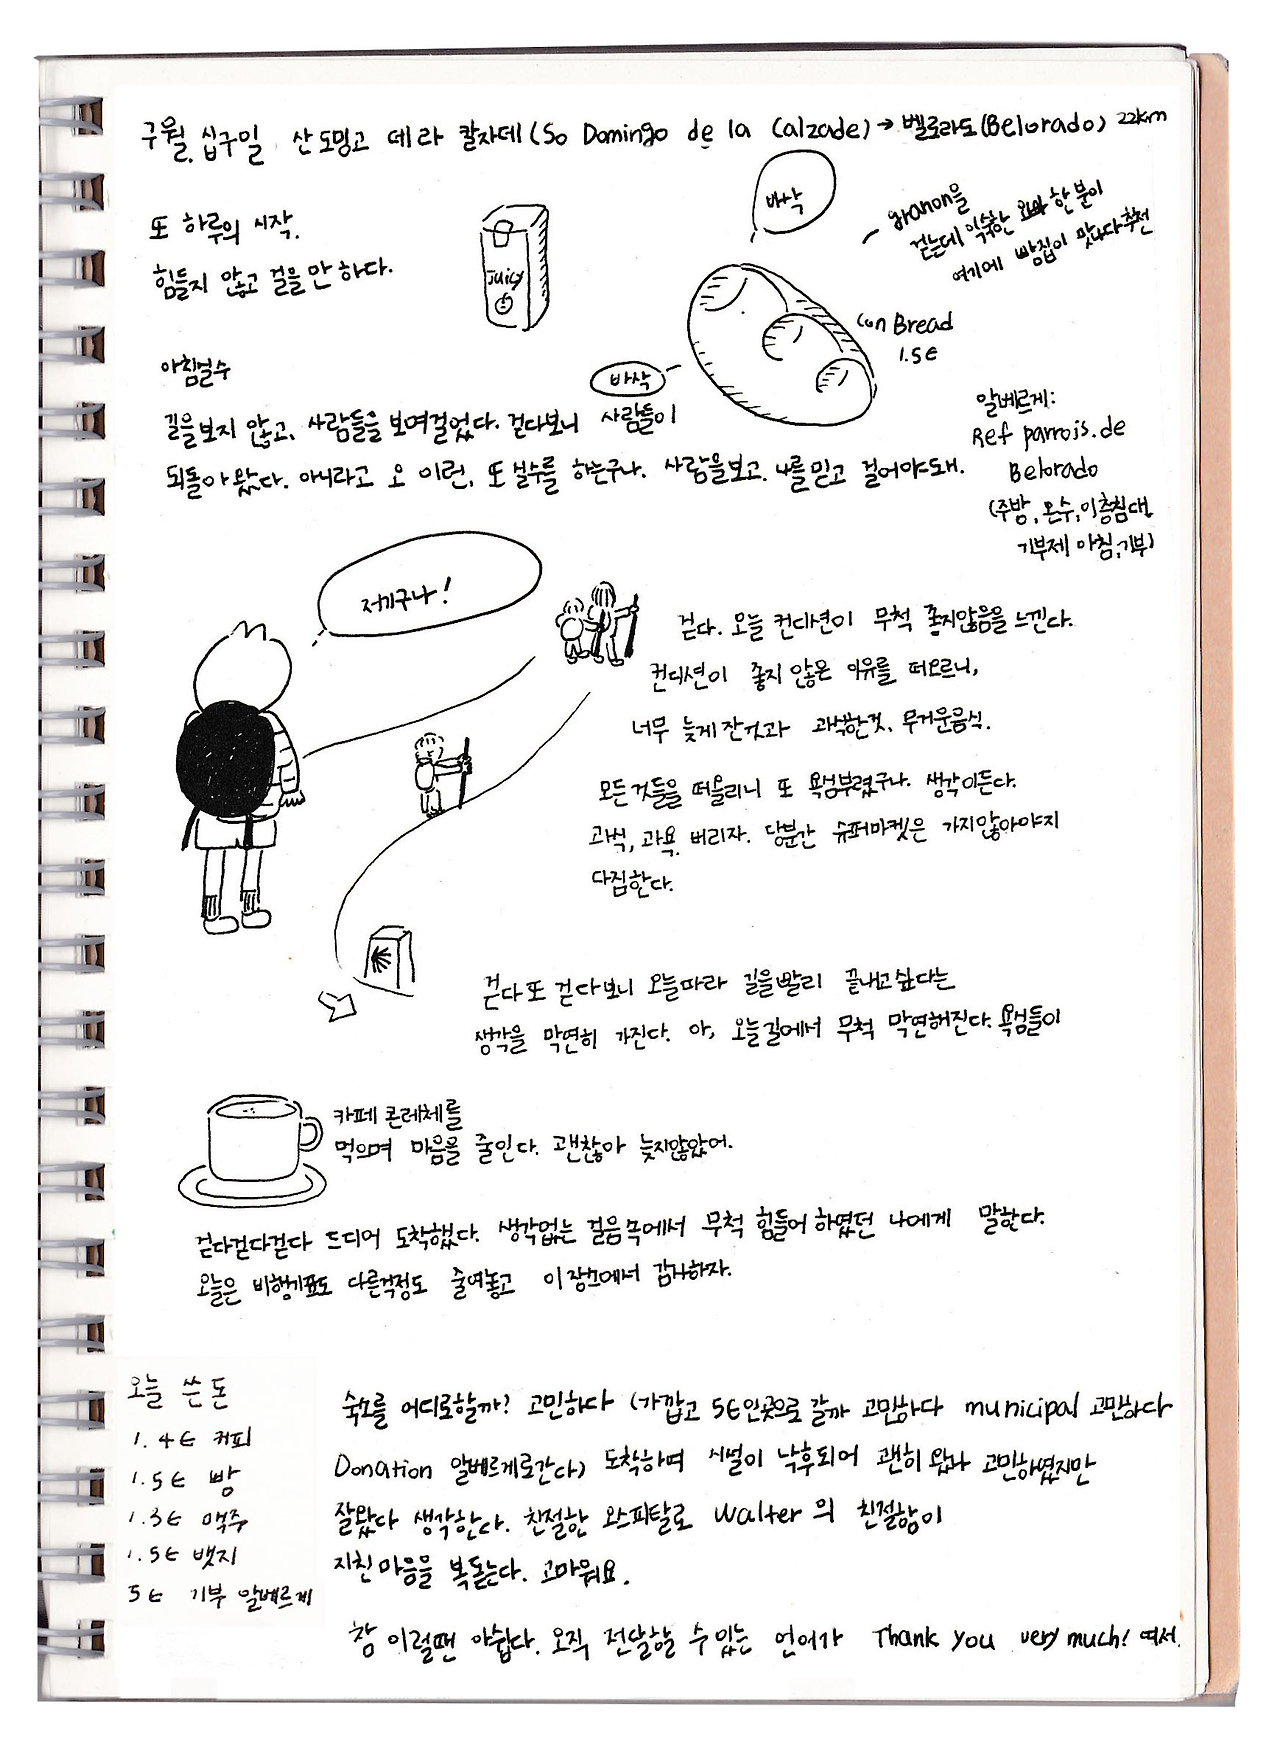 구월 십구일 산 도밍고 데 라 칼자데 (So Domingo de la Calzade) → 벨로라도 (Belorado) 22km
또 하루의 시작.
힘들지 않고 걸을만 하다.
Juicy
바삭
granon을
걷는데 익숙한 한 분이
여기에 빵집이 맛나다 추천
바삭
Bread
1.5€
아침실수
길을 보지 않고, 사람들을 보며 걸었다. 걷다보니 사람들이
되돌아 왔다. 아니라고 오 이런, 또 실수를 하는구나. 사람을 보고. 나를 믿고 걸어야돼.
알베르게:
Ref parrois.de
Belorado
(주방, 온수, 이층침대,
기부제 아침,기부)
저기구나!
걷다. 오늘 컨디션이 무척 좋지않음을 느낀다.
컨디션이 좋지 않은 이유를 떠오르니,
너무 늦게 잔것과 과식한것, 무거운음식.
모든 것들을 떠올리니 또 욕심부렸구나. 생각이든다.
과식, 과욕 버리자. 당분간 슈퍼마켓은 가지않아야지
다짐한다.
걷다 또 걷다보니 오늘따라 길을 빨리 끝내고 싶다는
생각을 막연히 가진다. 아, 오늘길에서 무척 막연해진다. 욕심들이
카페 콘레체를
먹으며 마음을 줄인다. 괜찮아 늦지않았어.
걷다걷다걷다 드디어 도착했다. 생각없는 걸음 속에서 무척 힘들어 하였던 나에게 말한다.
오늘은 비행기표도 다른걱정도 줄여놓고 이 장소에서 감사하자.
오늘 쓴 돈
1.4€ 커피
1.5€ 빵
1.3€ 맥주
1.5€ 뱃지
5€ 기부 알베르게
숙소를 어디로할까? 고민하다 (가깝고 5€인곳으로 갈까 고민하다 municipal 고민하다
Donation 알베르게로간다) 도착하며 시설이 낙후되어 괜히 왔나 고민하였지만
잘왔다 생각한다. 친절한 오스피탈로 Walter 의 친절함이
지친 마음을 북돋는다. 고마워요.
참 이럴땐 아쉽다. 오직 전달할 수 있는 언어가 Thank you very much! 여서.